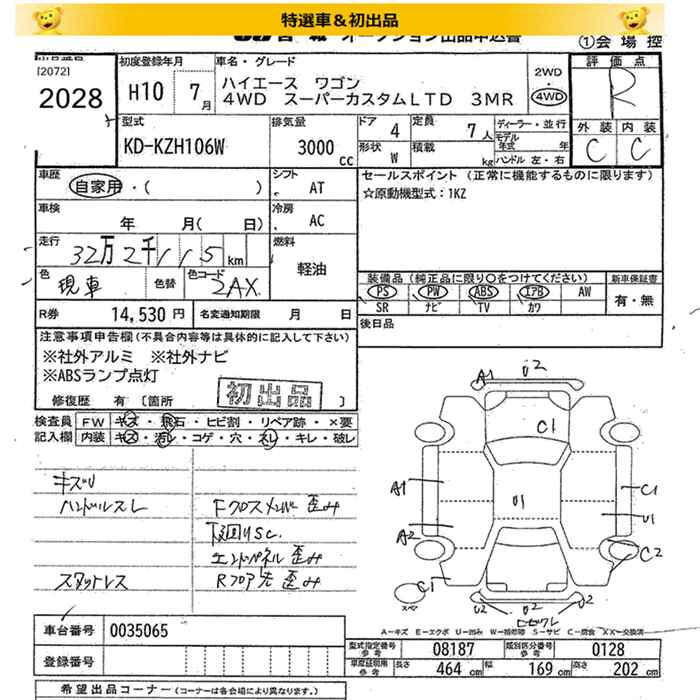 特選車＆初出品
オークション出品申込書
①会場控
出品番号
[2072]
2028
初度登録年月
H10 7月
車名・グレード
ハイエース ワゴン
4WD スーパーカスタムLTD 3MR
2WD
4WD
評価点
R
外装 内装
C C
型式
KD-KZH106W
排気量
3000 cc
ドア 4
形状 W
定員 7人
積載 kg
ディーラー・並行
モデル年式 年
ハンドル 左・右
車歴
自家用・( )
シフト
AT
セールスポイント (正常に機能するものに限ります)
☆原動機型式:1KZ
車検
年 月( 日)
冷房
AC
走行
32万2千115km
燃料
軽油
色
現車
色替
色コード
2AX
装備品(純正品に限り○をつけてください)
新車保証書
PS PW ABS エアB AW
SR ナビ TV カワ
有・無
R券 14,530円
名変通知期限 月 日
後日品
注意事項申告欄(不具合内容等は具体的に記入して下さい)
※社外アルミ ※社外ナビ
※ABSランプ点灯
修復歴 有 〔箇所 〕
初出品
検査員記入欄
FW キズ・飛石・ヒビ割・リペア跡・×要
内装 キズ・汚レ・コゲ・穴・スレ・キレ・破レ
キズU
ハンドルスレ
Fクロスメンバー歪み
下回りSC.
エンドパネル歪み
スタットレス
Rフロア先歪み
A1
U2
C1
A1
U1
C1
U1
A2
C2
C1
スペア
U2 U2 U2
A−キズ E−エクボ U−凹み W−補修跡 S−サビ C−腐食 XX−交換済
車台番号 0035065
登録番号
型式指定番号参考 08187
類別区分番号参考 0128
車庫証明用参考 長さ 464 cm 幅 169 cm 高さ 202 cm
希望出品コーナー(コーナーは各会場により異なります。)